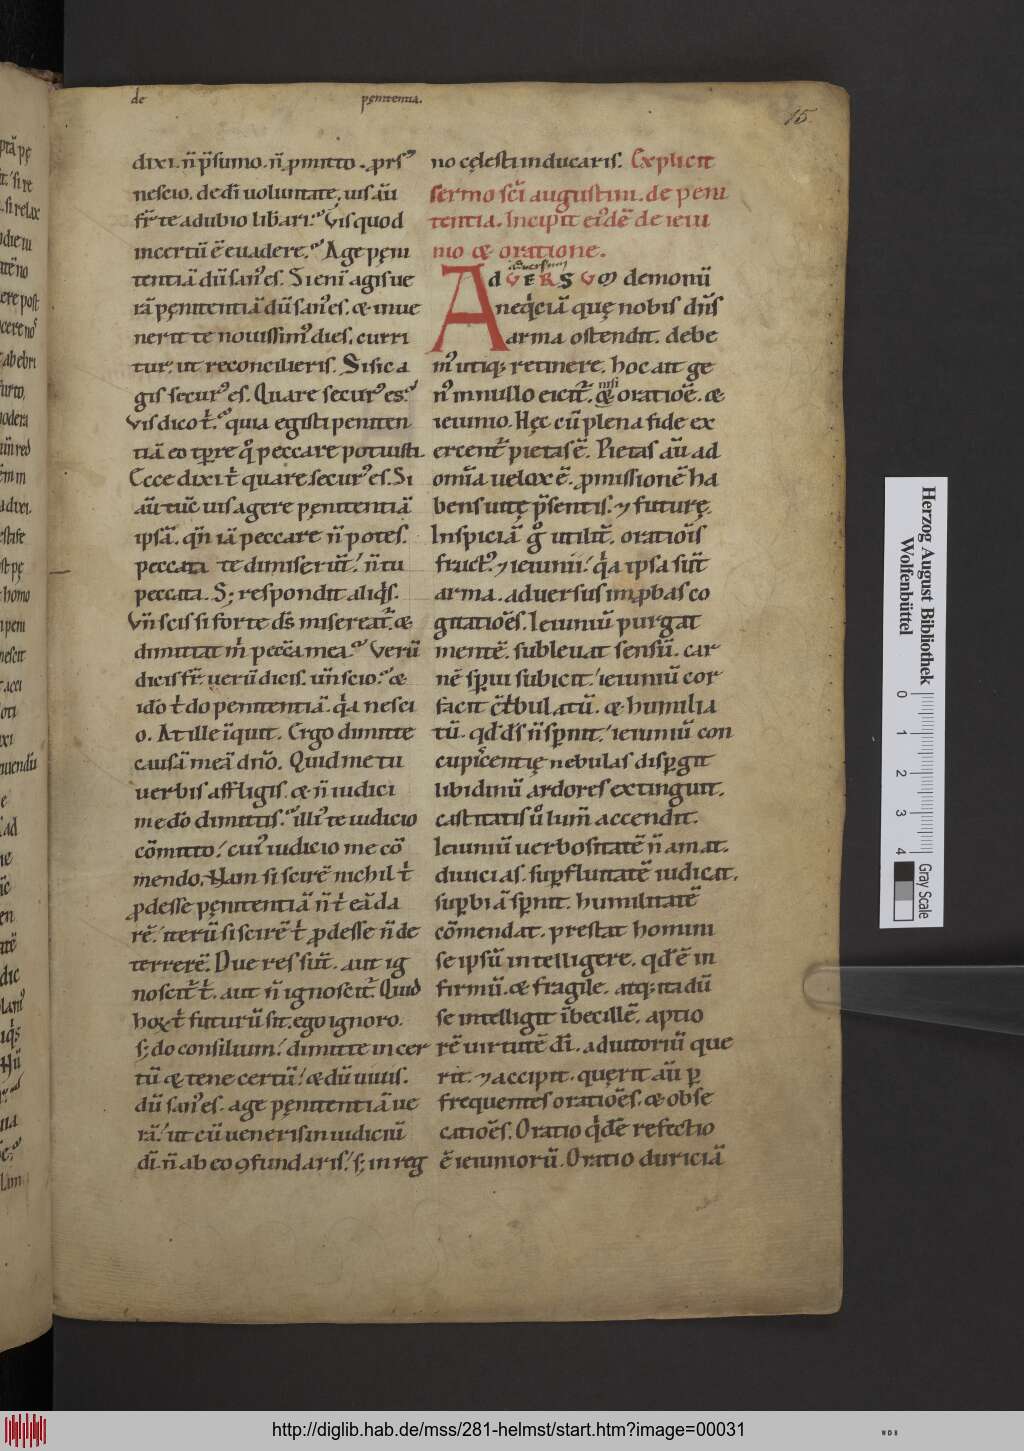 de penitentia.
15.
dixi. n̄ p̄sumo. n̄ ꝓmitto. ꝓrsꝰ
nescio. de dī uoluntate. uis aū
fr̄ te a dubio lib̄ari. Vis quod
incertū ē euadere. Age pęni
tentiā dū sanꝰ es. Si enī agis ue
rā pęnitentiā dū sanꝰ es. & inue
nerit te nouissimꝰ dies. curri
tur. ut reconcilieris. Si sic a
gis securꝰ es. Quare securꝰ es.
Vis dico t̄. quia egisti peniten
tiā eo tp̄re qͦ peccare potuisti.
Ecce dixi t̄ quare securꝰ es. Si
aū tūc uis agere pęnitentiā
ipsā. qn̄ iā peccare n̄ potes.
peccata te dimiserūt. n̄ tu
peccata. S; respondit aliqͥs.
Vn̄ scis si forte dꝰs misereat̄. &
dimittat m̄ pecc̄a mea. Verū
dicis fr̄ uerū dicis. un̄ scio. &
idō t̄ do penitentiā. qͥa nesci
o. At ille īquit. Ergo dimitte
causā meā dn̄o. Quid me tu
uerbis affligis. & n̄ iudici
me dō dimittis. illiꝰ te iudicio
cōmitto. cuiꝰ iudicio me cō
mendo. Nam si scirē nichil t̄
ꝓdesse pęnitentiā n̄ t̄ eā da
rē. iterū si scirē t̄ ꝓdesse n̄ de
terrerē. Due res sūt. aut ig
noscit̄ t̄. aut n̄ ignoscit̄. Quid
hoꝝ t̄ futurū sit. ego ignoro.
s; do consilium. dimitte incer
tū & tene certū. & dū uiuis.
dū sanꝰ es. age pęnitentiā ue
rā. ut cū ueneris in iudiciū
dī. n̄ ab eo ꝯfundaris. s; in reg
no cęlesti inducaris. Explicit
sermo sc̄i augustini. de peni
tentia. Incipit eiꝰdē de ieiu
nio & oratione.
aduersum
Ad VERSVM demonū
neqͥciā quę nobis dn̄s
arma ostendit. debe
mꝰ utiq; retinere. hoc ait ge
nꝰ in nullo eicit̄. nisi & oratiōē. &
ieiunio. Hęc cū plena fide ex
ercent̄ pietas ē. Pietas aū ad
omīa uelox ē. ꝓmissionē ha
bens uitę p̄sentis. ⁊ futurę.
Inspiciā gͦ utilit̄. oratiōis
fructꝰ. ⁊ ieiunii. qͥa ipsa sūt
arma. aduersus inꝓbas co
gitatiōes. Ieiuniū purgat
mentē. subleuat sensū. car
nē sp̄iui subicit. ieiuniū cor
facit c̄t̄bulatū. & humilia
tū. qd̄ dꝰs n̄ sp̄nit. ieiuniū con
cupiscentię nebulas disp̄git
libidinū ardores extinguit.
castitatis uͦ lum̄ accendit.
Ieiuniū uerbositatē n̄ amat.
diuicias. sup̄fluitatē iudicat.
sup̄biā sp̄nit. humilitatē
cōmendat. prestat homini
se ipsū intelligere. qd̄ ē in
firmū. & fragile. atq; ita dū
se intelligit ībecillē. aptio
rē uirtutē dī. adiutoriū que
rit. ⁊ accipit. quęrit aū p̄
frequentes oratiōes. & obse
catiōes. Oratio qͥdē refectio
ē ieiuniorū. Oratio duriciā
Herzog August Bibliothek
Wolfenbüttel
0 1 2 3 4
Gray Scale
http://diglib.hab.de/mss/281-helmst/start.htm?image=00031